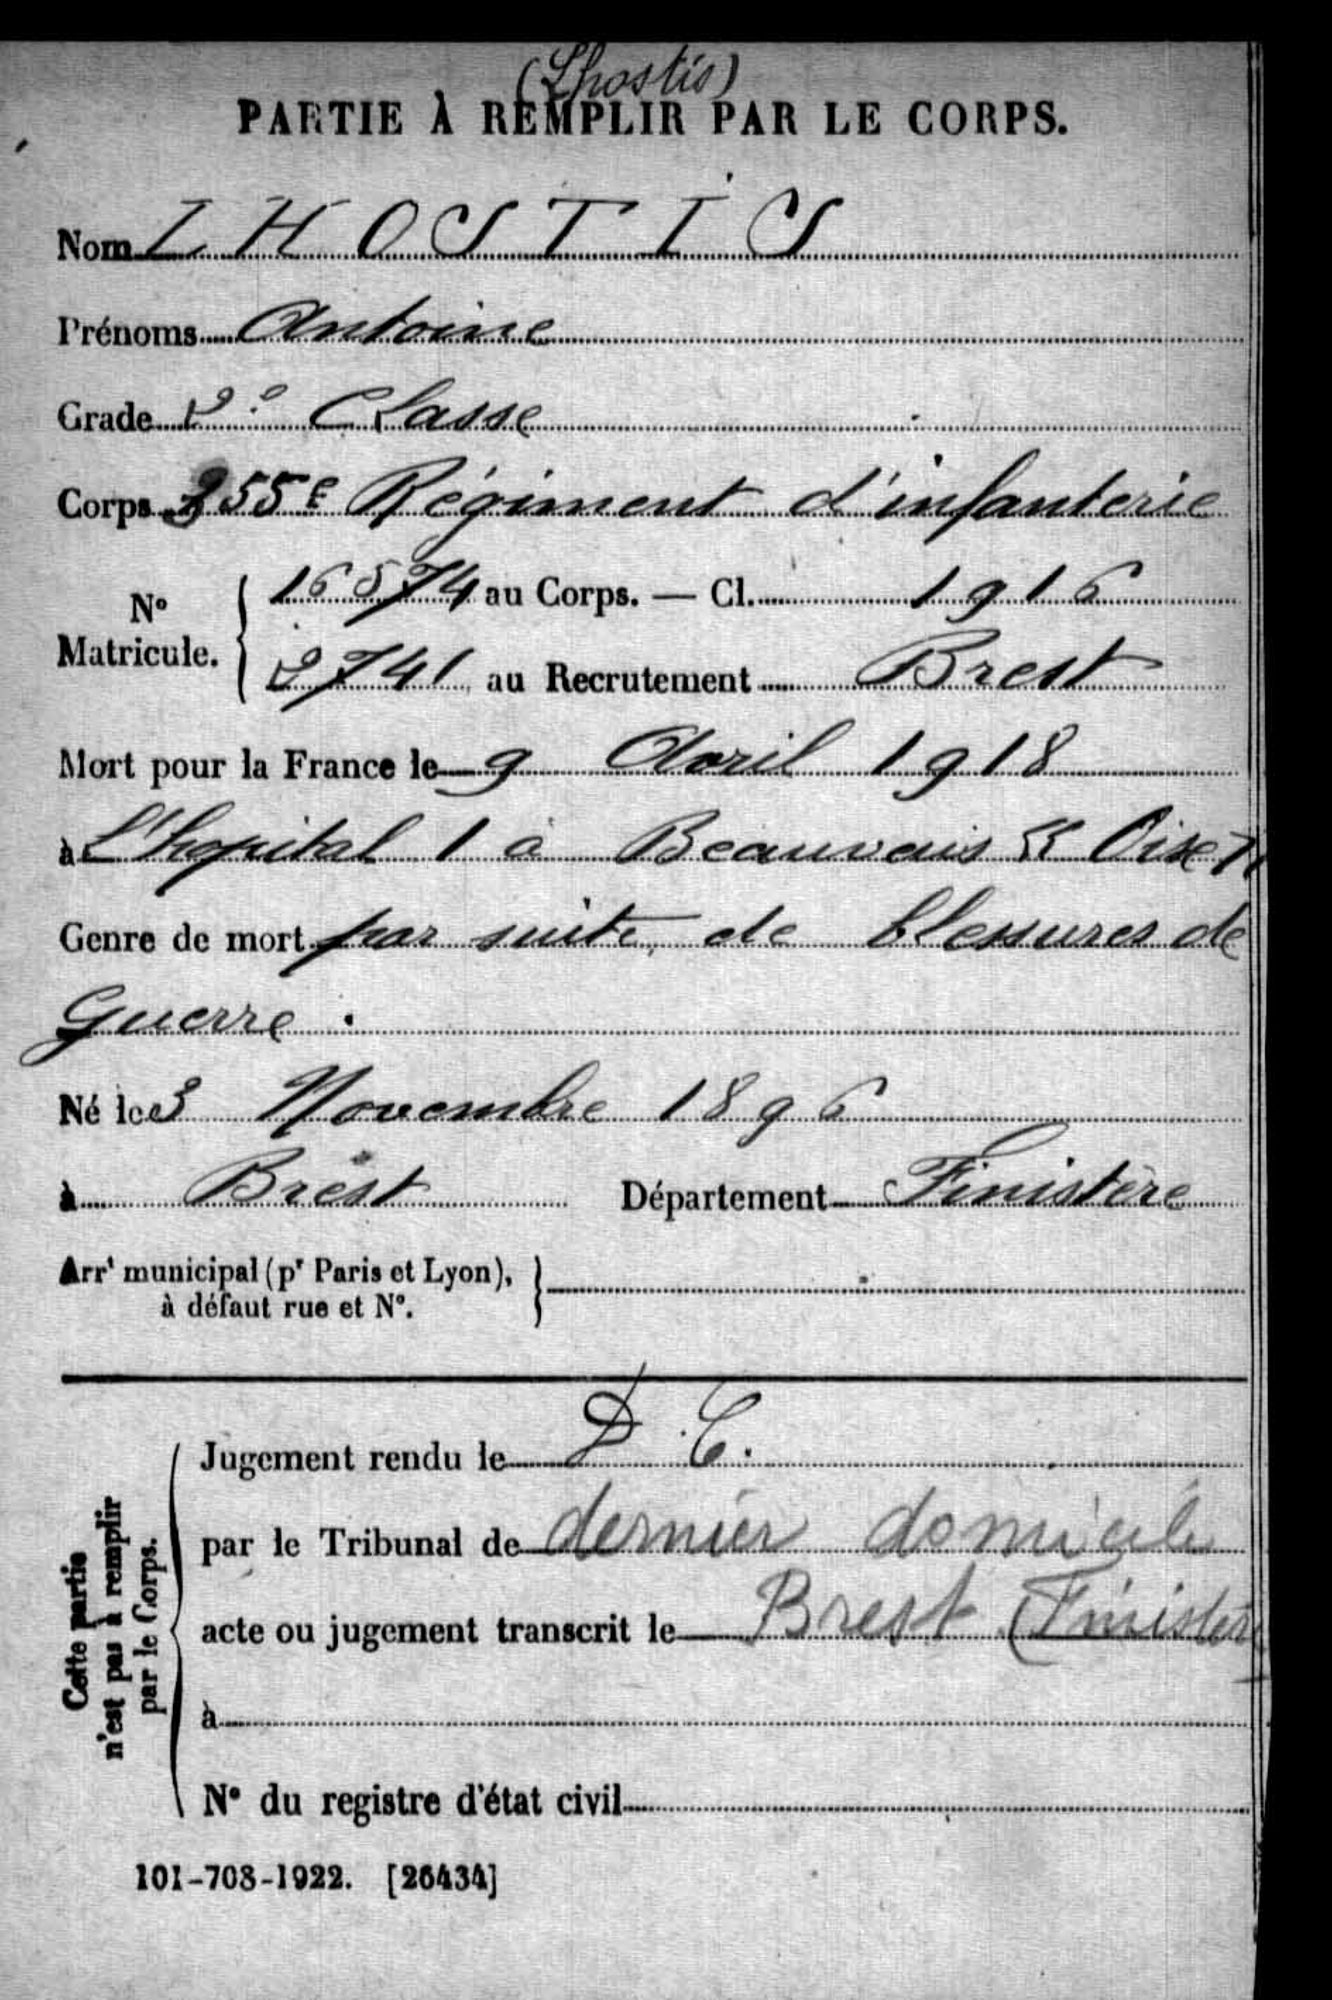 (Lhostis)
PARTIE À REMPLIR PAR LE CORPS.
Nom LHOSTIS
Prénoms Antoine
Grade 2e Classe
Corps 355e Régiment d'infanterie
N° Matricule. { 16574 au Corps. — Cl. 1916
2741 au Recrutement Brest
Mort pour la France le 9 Avril 1918
à L'hopital 1 à Beauvais « Oise »
Genre de mort par suite de blessures de
Guerre.
Né le 3 Novembre 1896
à Brest Département Finistère
Arrt municipal (pr Paris et Lyon), à défaut rue et N°. }
Cette partie n'est pas à remplir par le Corps.
Jugement rendu le D. C.
par le Tribunal de dernier domicile
acte ou jugement transcrit le Brest (Finistère
à
N° du registre d'état civil
101-708-1922. [26434]